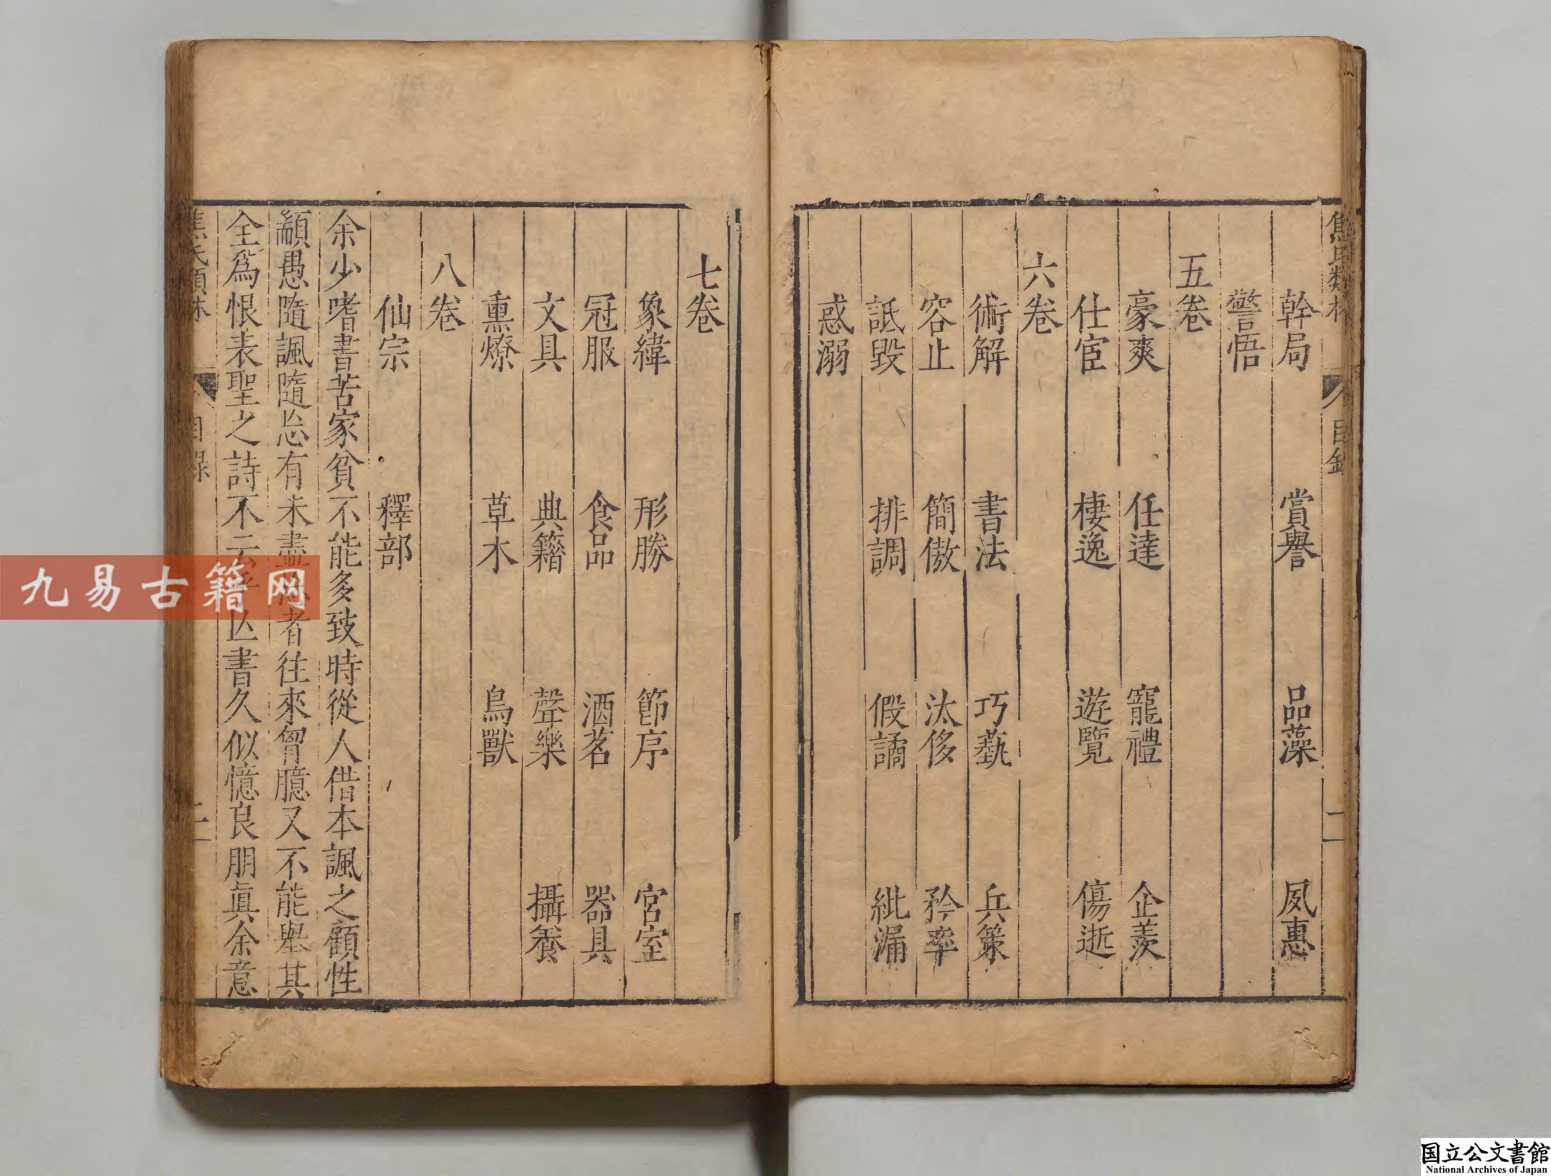 焦氏類林
目錄
二
幹局 賞譽 品藻 夙惠
警悟
五卷
豪爽 任達 寵禮 企羨
仕宦 棲逸 遊覽 傷逝
六卷
術解 書法 巧藝 兵策
容止 簡傲 汰侈 矜率
詆毀 排調 假譎 紕漏
惑溺
七卷
象緯 形勝 節序 宮室
冠服 食品 酒茗 器具
文具 典籍 聲樂 攝養
熏燎 草木 鳥獸
八卷
仙宗 釋部
余少嗜書苦家貧不能多致時從人借本諷之顧性
顓愚隨諷隨忘有未盡忘者往來胷臆又不能舉其
全爲恨表聖之詩不云乎亡書久似憶良朋眞余意
焦氏類林
目錄
二
九易古籍网
国立公文書館
National Archives of Japan